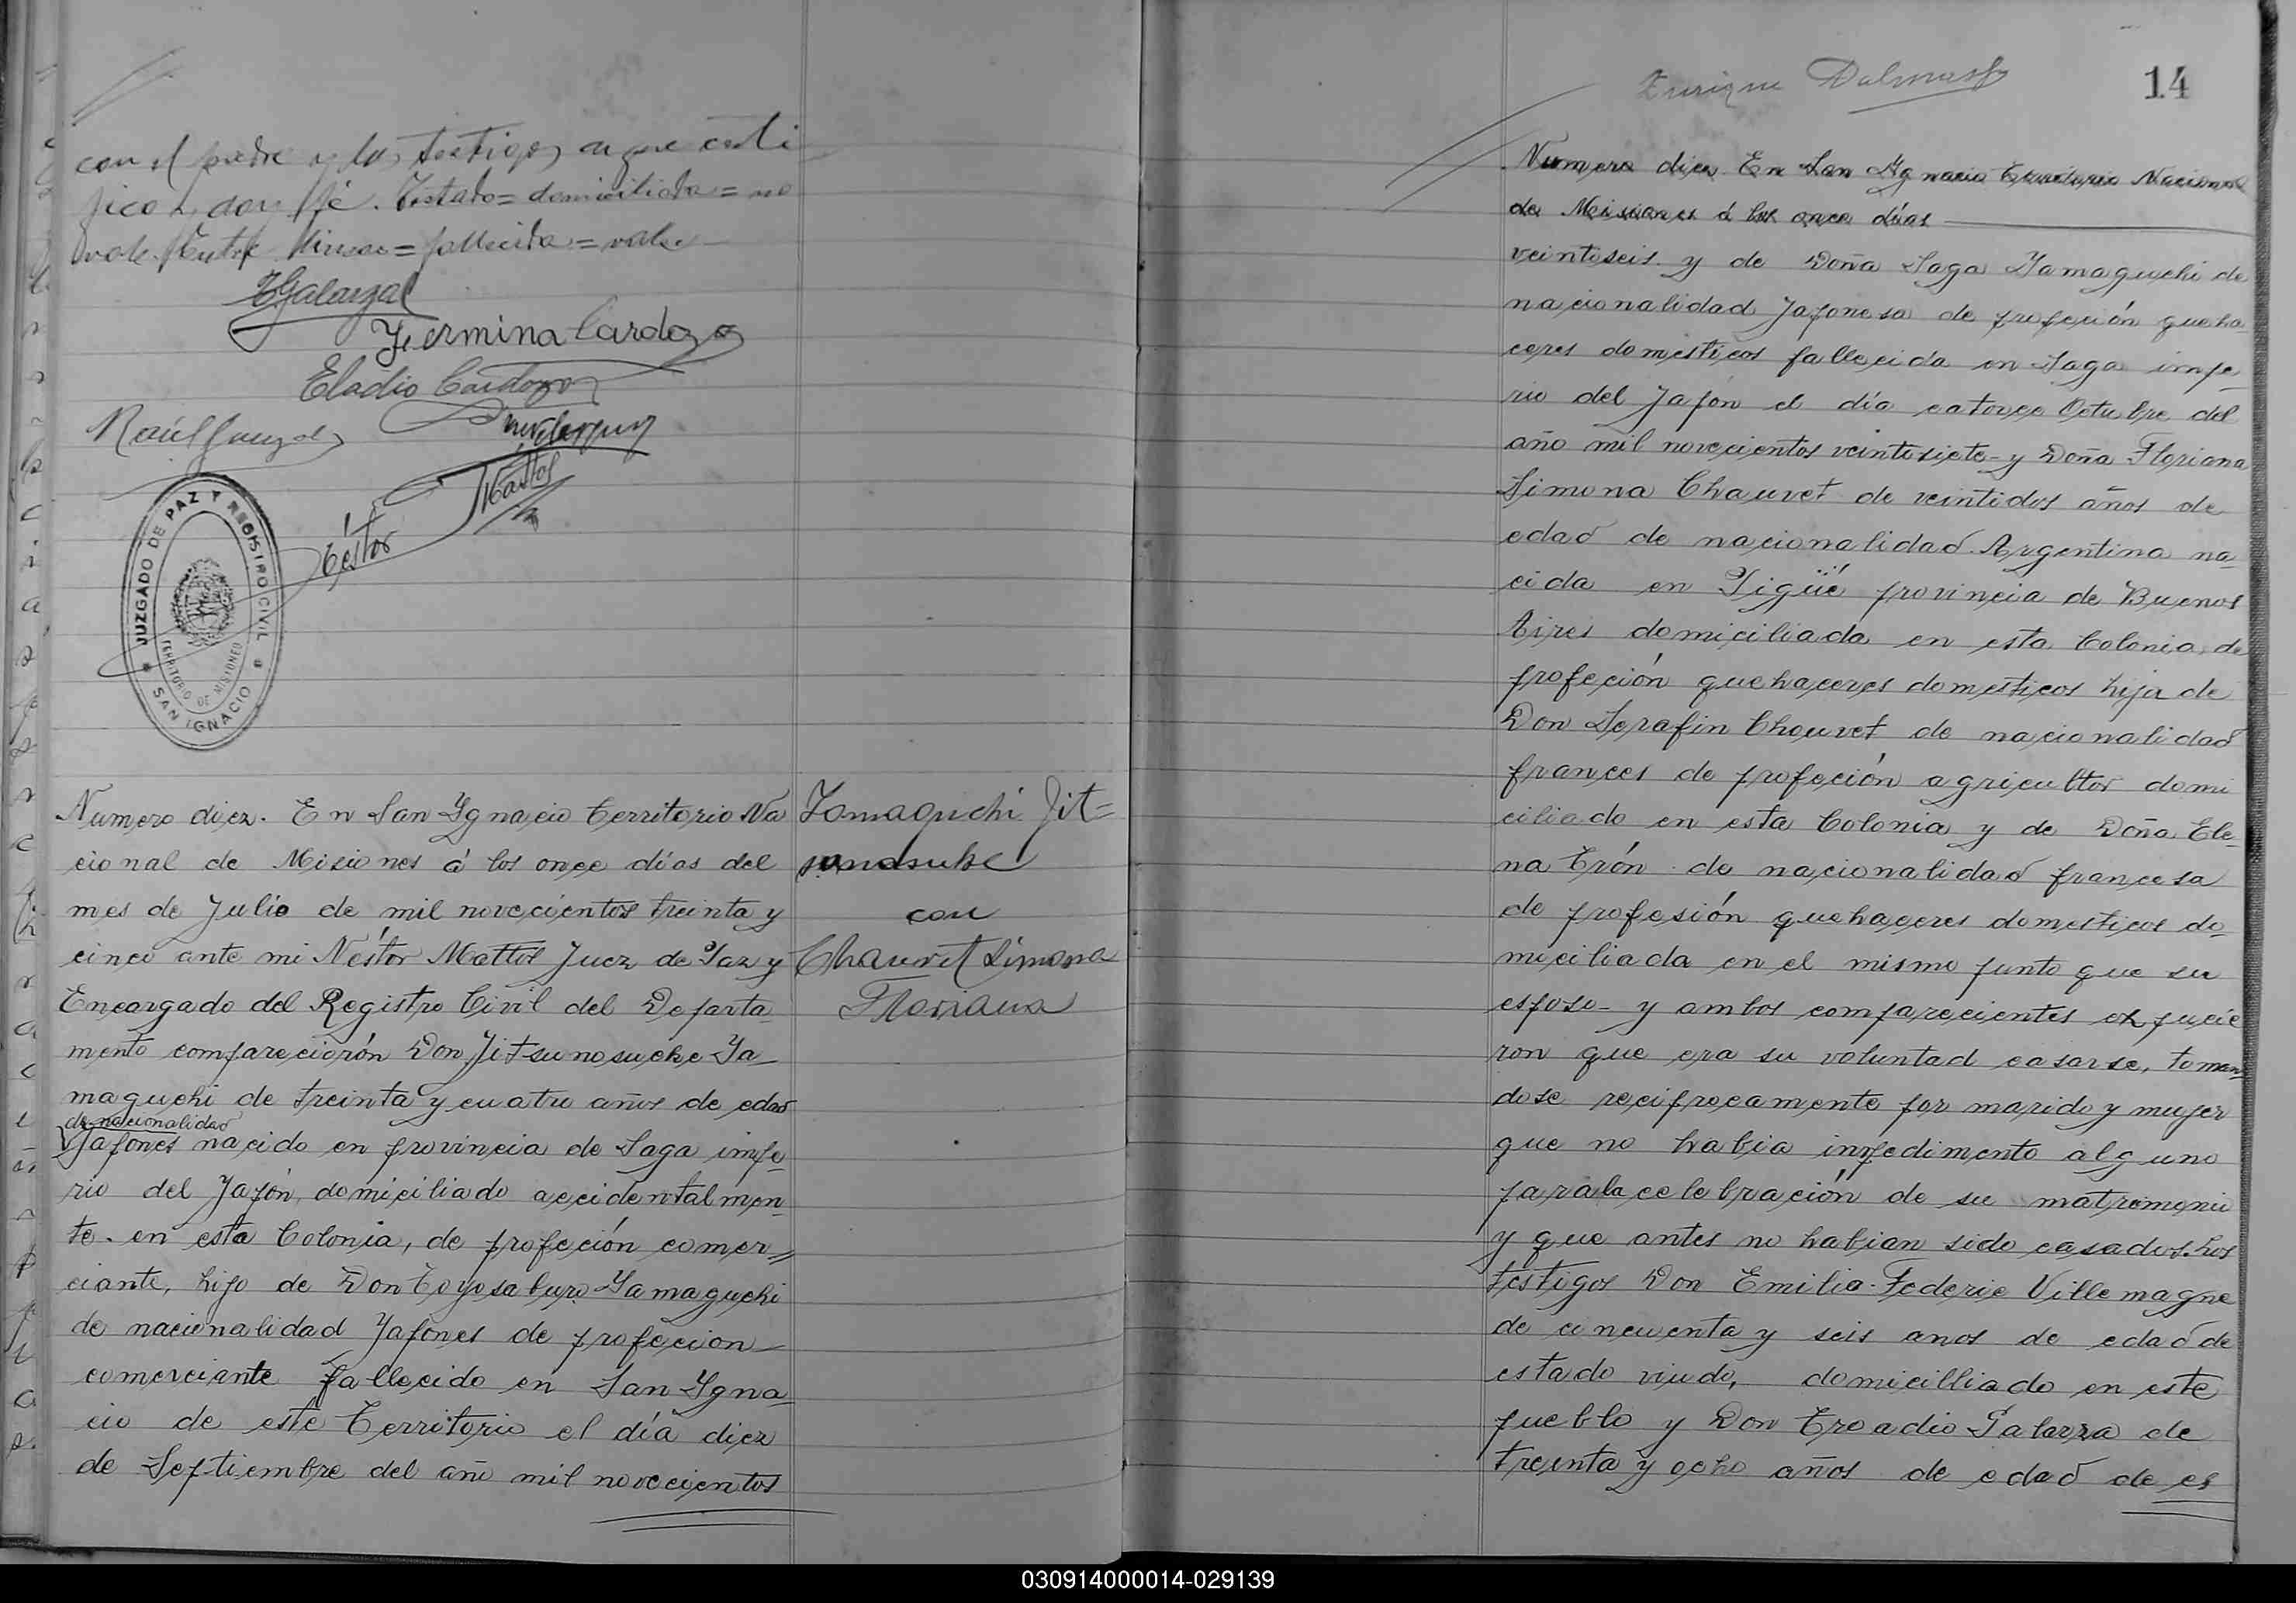 con el padre y los testigos a que certi
fico y doy fé. Testado=domiciliada=no
vale. Entre lineas=fallecida=vale
TGalarza
Fermina Cardozo
Eladio Cardozo
Raúl
Néstor Mattos
JUZGADO DE PAZ Y REGISTRO CIVIL
TERRITORIO DE MISIONES
SAN IGNACIO
Numero diez. En San Ygnacio Territorio Na
cional de Misiones á los once días del
mes de Julio de mil novecientos treinta y
cinco ante mi Néstor Mattos Juez de Paz y
Encargado del Registro Civil del Departa-
mento comparecierón Don Jitsunosuche Ya-
maguchi de treinta y cuatro años de edad
de nacionalidad
Japones nacido en provincia de Saga impe-
rio del Japón, domiciliado accidentalmen-
te en esta Colonia, de profeción comer=
ciante, hijo de Don Toyosaburo Yamaguchi
de nacionalidad Japones de profecion
comerciante fallecido en San Ygna-
cio de este Territorio el día diez
de Septiembre del año mil novecientos
Yamaguchi Jit=
sunosuke
con
Chauvet Simona
Floriana
Enrique Dalmasso
14
Numero diez. En San Ygnacio Territorio Nacional
de Misiones á los once días
veintiseis y de Doña Saga Yamaguchi de
nacionalidad Japonesa de profeción queha
ceres domesticos fallecida en Saga impe-
rio del Japón el día catorce Octubre del
año mil novecientos veintisiete-y Doña Floriana
Simona Chauvet de veintidos años de
edad de nacionalidad Argentina na-
cida en Pigüé provincia de Buenos
Aires domiciliada en esta Colonia de
profeción quehaceres domesticos hija de
Don Serafin Chauvet de nacionalidad
frances de profeción agricultor domi
ciliado en esta Colonia y de Doña Ele-
na Trón de nacionalidad francesa
de profesión quehaceres domesticos do-
miciliada en el mismo punto que su
esposo- y ambos comparecientes expucie
ron que era su voluntad casarse, toman-
dose recíprocamente por marido y mujer
que no habia impedimento alguno
para la celebración de su matrimonio
y que antes no habian sido casados. Los
testigos Don Emilio Federic Villemagne
de cincuenta y seis anos de edad de
estado viudo, domicilliado en este
pueblo y Don Troadio Galarza de
treinta y ocho años de edad de es
030914000014-029139